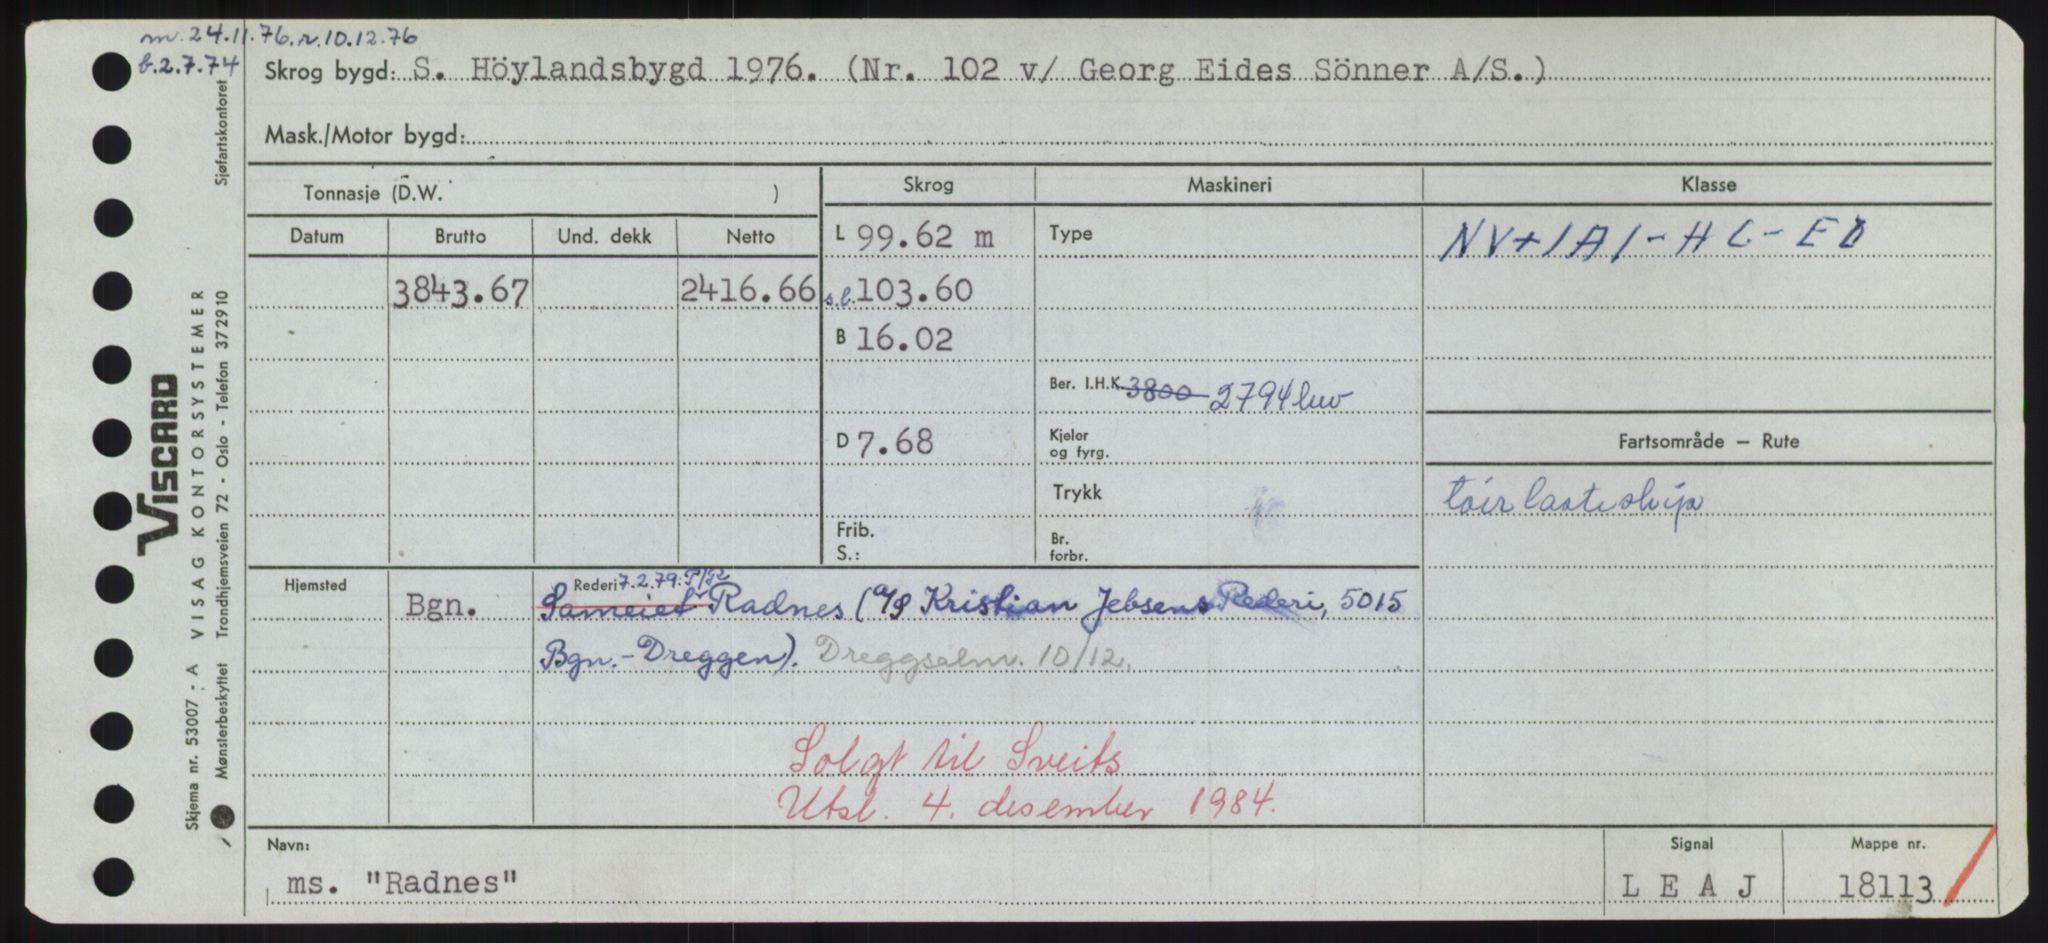 m. 24.11.76. r. 10.12.76
b. 2.7.74
Skrog bygd: S. Höylandsbygd 1976. (Nr. 102 v/ Georg Eides Sönner A/S.)
Mask./Motor bygd:
Tonnasje (D.W. )
Skrog
Maskineri
Klasse
Datum Brutto Und. dekk Netto
L 99.62 m
Type
NV+1A1-HC-EO
3843.67 2416.66
s.l. 103.60
B 16.02
Ber. I.H.K. 3800 2794 kw
D 7.68
Kjeler
og fyrg.
Fartsområde – Rute
Trykk
tørrlasteskip
Frib.
S.:
Br.
forbr.
Hjemsted
Rederi 7.2.79: P/R
Bgn. Sameiet Radnes (A/S Kristian Jebsens Rederi, 5015
Bgn.-Dreggen). Dreggsalm. 10/12.
Solgt til Sveits
Utsl. 4. desember 1984.
Navn:
ms. "Radnes"
Signal
L E A J
Mappe nr.
18113
VISCARD
Skjema nr. 53007 - A VISAG KONTORSYSTEMER
Mønsterbeskyttet Trondhjemsveien 72 - Oslo - Telefon 372910
Sjøfartskontoret